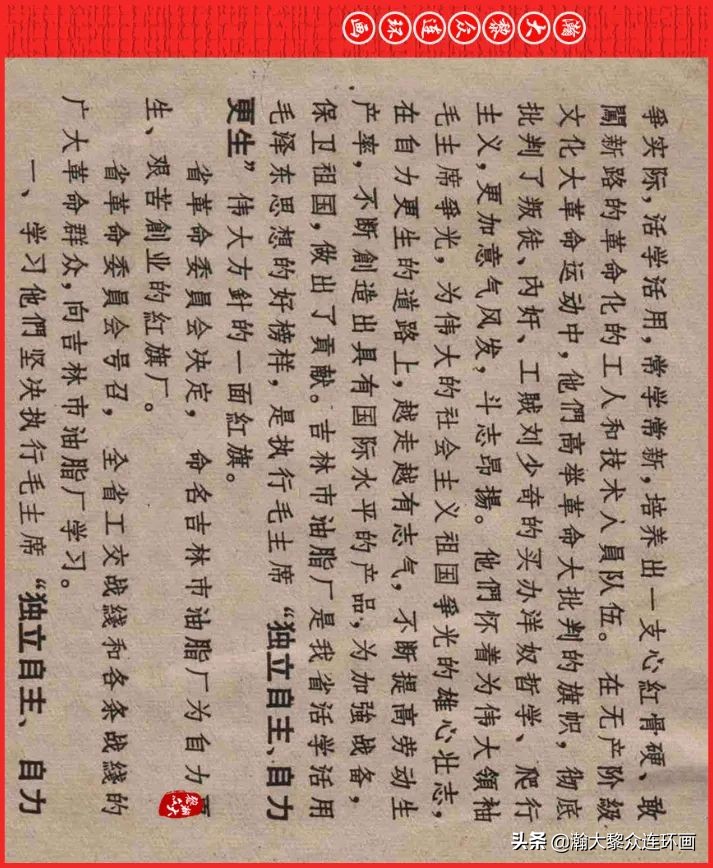 瀚大黎众连环画
爭实际，活学活用，常学常新，培养出一支心紅骨硬、敢
闖新路的革命化的工人和技术人員队伍。在无产阶級
文化大革命运动中，他們高举革命大批判的旗帜，彻底
批判了叛徒、內奸、工贼刘少奇的买办洋奴哲学、爬行
主义，更加意气风发，斗志昂揚。他們怀着为伟大領袖
毛主席爭光，为伟大的社会主义祖国爭光的雄心壮志，
在自力更生的道路上，越走越有志气，不断提高劳动生
产率，不断創造出具有国际水平的产品，为加強战备，
保卫祖国，做出了貢献。吉林市油脂厂是我省活学活用
毛泽东思想的好榜样，是执行毛主席“独立自主、自力
更生”伟大方針的一面紅旗。
省革命委員会决定，命名吉林市油脂厂为自力
生、艰苦創业的紅旗厂。
省革命委員会号召，全省工交战綫和各条战綫的
广大革命群众，向吉林市油脂厂学习。
一、学习他們坚决执行毛主席“独立自主、自力
头条 @瀚大黎众连环画